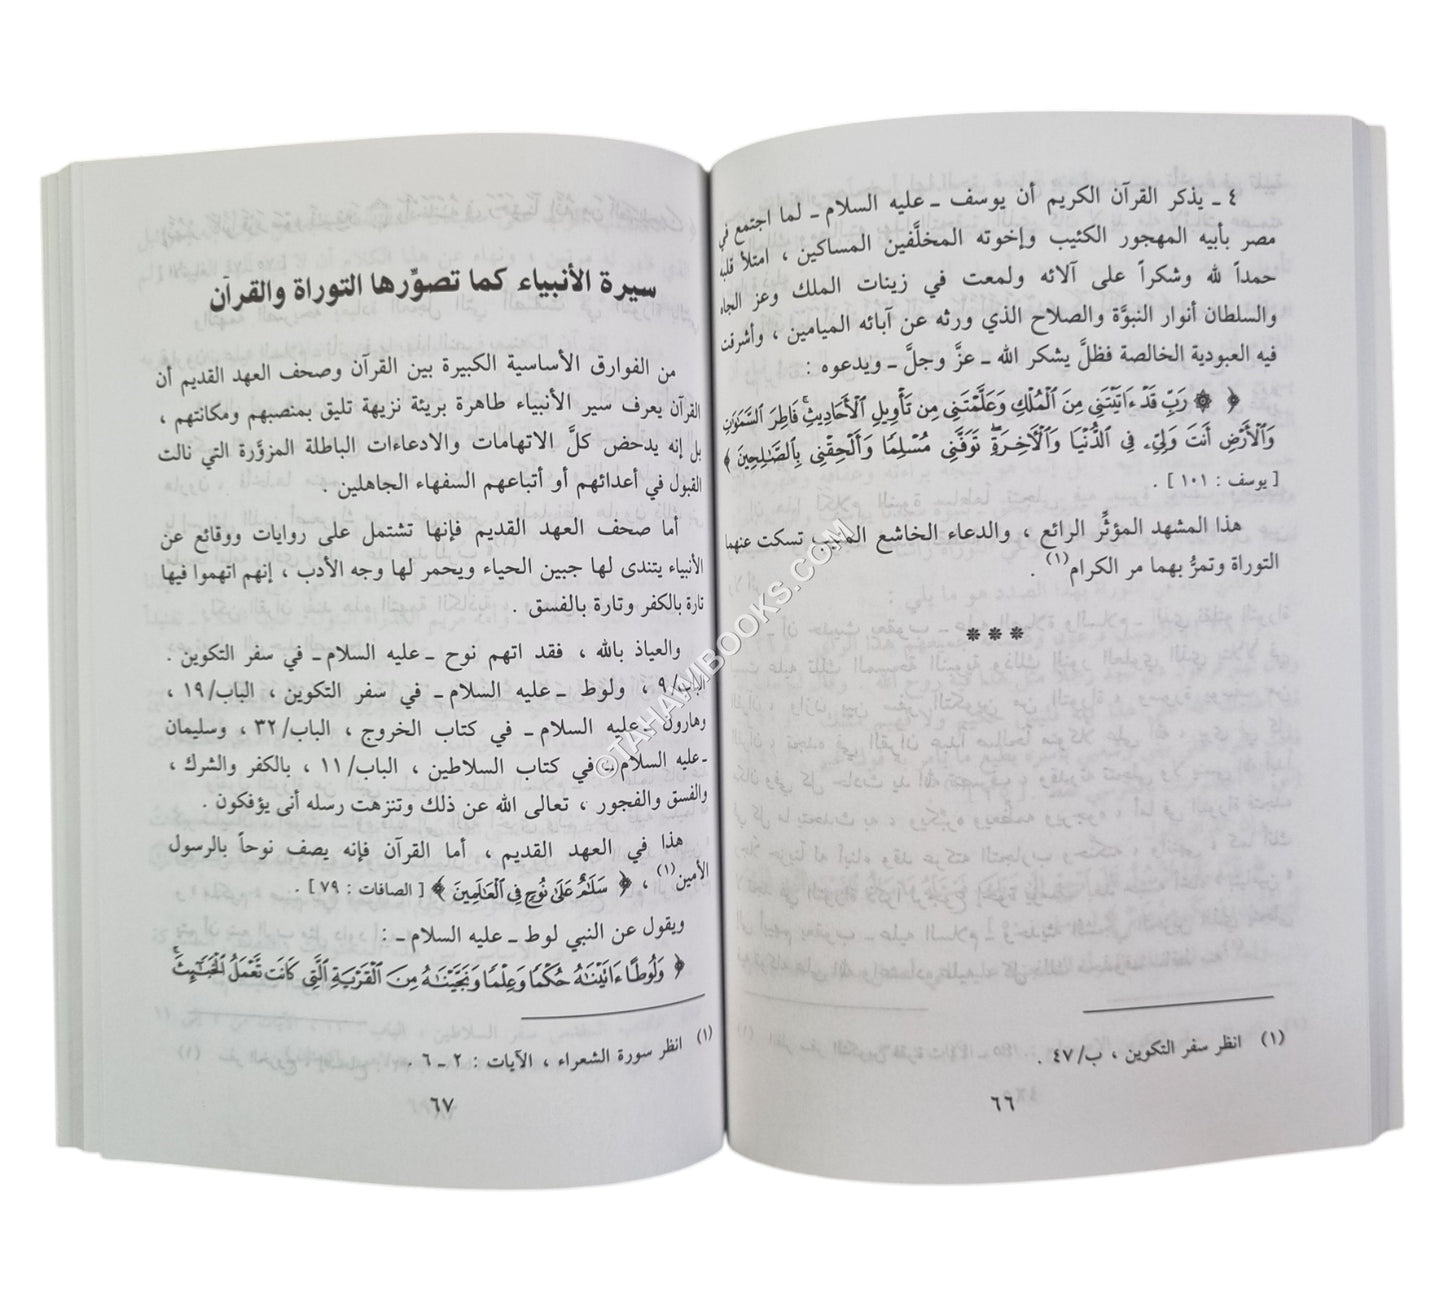 ٤ ـ يذكر القرآن الكريم أن يوسف ـ عليه السلام ـ لما اجتمع في
مصر بأبيه المهجور الكئيب وإخوته المخلَّفين المساكين ، امتلأ قلبه
حمداً لله وشكراً على آلائه ولمعت في زينات الملك وعز الجاه
والسلطان أنوار النبوَّة والصلاح الذي ورثه عن آبائه الميامين ، وأشرقت
فيه العبودية الخالصة فظلَّ يشكر الله ـ عزَّ وجلَّ ـ ويدعوه :
﴿ ۞ رَبِّ قَدْ ءَاتَيْتَنِي مِنَ الْمُلْكِ وَعَلَّمْتَنِي مِن تَأْوِيلِ الْأَحَادِيثِ ۚ فَاطِرَ السَّمَٰوَٰتِ
وَالْأَرْضِ أَنتَ وَلِيِّۦ فِي الدُّنْيَا وَالْآخِرَةِ ۖ تَوَفَّنِي مُسْلِمًا وَأَلْحِقْنِي بِالصَّٰلِحِينَ ﴾
[ يوسف : ١٠١ ] .
هذا المشهد المؤثِّر الرائع ، والدعاء الخاشع المنيب تسكت عنهما
التوراة وتمرُّ بهما مر الكرام(١) .
* * *
(١) انظر سفر التكوين ، ب/٤٧ .
٦٦
سيرة الأنبياء كما تصوِّرها التوراة والقرآن
من الفوارق الأساسية الكبيرة بين القرآن وصحف العهد القديم أن
القرآن يعرف سير الأنبياء طاهرة بريئة نزيهة تليق بمنصبهم ومكانتهم ،
بل إنه يدحض كلَّ الاتهامات والادعاءات الباطلة المزوَّرة التي نالت
القبول في أعدائهم أو أتباعهم السفهاء الجاهلين .
أما صحف العهد القديم فإنها تشتمل على روايات ووقائع عن
الأنبياء يتندى لها جبين الحياء ويحمر لها وجه الأدب ، إنهم اتهموا فيها
تارة بالكفر وتارة بالفسق .
والعياذ بالله ، فقد اتهم نوح ـ عليه السلام ـ في سفر التكوين .
الباب/٩ ، ولوط ـ عليه السلام ـ في سفر التكوين ، الباب/١٩ ،
وهارون ـ عليه السلام ـ في كتاب الخروج ، الباب/٣٢ ، وسليمان
ـ عليه السلام ـ في كتاب السلاطين ، الباب/١١ ، بالكفر والشرك ،
والفسق والفجور ، تعالى الله عن ذلك وتنزهت رسله أنى يؤفكون .
هذا في العهد القديم ، أما القرآن فإنه يصف نوحاً بالرسول
الأمين(١) ، ﴿ سَلَٰمٌ عَلَىٰ نُوحٍ فِي الْعَٰلَمِينَ ﴾ [ الصافات : ٧٩ ] .
ويقول عن النبي لوط ـ عليه السلام ـ :
﴿ وَلُوطًا ءَاتَيْنَٰهُ حُكْمًا وَعِلْمًا وَنَجَّيْنَٰهُ مِنَ الْقَرْيَةِ الَّتِي كَانَت تَّعْمَلُ الْخَبَٰٓئِثَ ۚ
(١) انظر سورة الشعراء ، الآيات : ٢ ـ ٦ .
٦٧
©TAHAMIBOOKS.COM